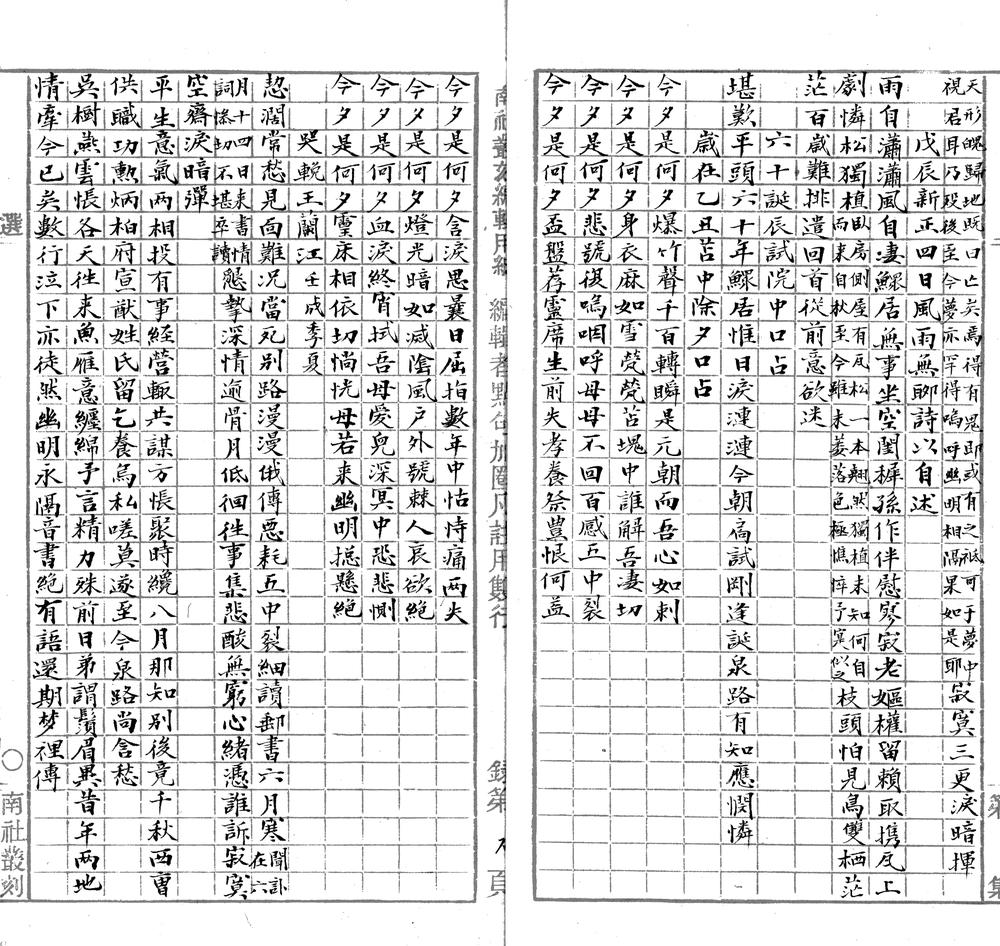 天形魄歸地既曰亡矣焉得有鬼即或有之祗可于夢中
視君耳乃歿後至今夢亦罕得嗚呼幽明相隔果如是耶寂寞三更淚暗揮
戊辰新正四日風雨無聊詩以自述
雨自瀟瀟風自淒鰥居無事坐空閨穉孫作伴慰寥寂老嫗權留賴取携瓦上
劇憐松獨植臥房側屋有瓦松一本翹然獨植未知何自
而來自秋至今雖未萎落色極憔悴予寞似之枝頭怕見鳥雙栖茫
茫百歲難排遣回首從前意欲迷
六十誕辰試院中口占
堪歎平頭六十年鰥居惟日淚漣漣今朝扃試剛逢誕泉路有知應憫憐
歲在乙丑苫中除夕口占
今夕是何夕爆竹聲千百轉瞬是元朝而吾心如刺
今夕是何夕身衣麻如雪煢煢苫塊中誰解吾淒切
今夕是何夕悲號復嗚咽呼母母不回百感五中裂
今夕是何夕盃盤荐靈席生前失孝養祭豐恨何益
今夕是何夕含淚思曩日屈指數年中怙恃痛兩失
今夕是何夕燈光暗如滅陰風戶外號棘人哀欲絕
今夕是何夕血淚終宵拭吾母愛兒深冥中恐悲惻
今夕是何夕靈床相依切惝恍母若來幽明摠懸絕
哭輓王蘭江壬戌季夏
契濶常愁見面難況當死别路漫漫俄傳惡耗五中裂細讀郵書六月寒聞訃在六
月十四日來書情
詞慘切不堪卒讀懇摯深情逾骨月低徊徃事集悲酸無窮心緒憑誰訴寂寞
空齋淚暗彈
平生意氣兩相投有事經營輒共謀方悵聚時纔八月那知别後竟千秋西曹
供職功勲炳柏府宣猷姓氏留乞養烏私嗟莫遂至今泉路尚含愁
吳樹燕雲悵各天徃来魚雁意纏綿予言精力殊前日弟謂鬚眉異昔年兩地
情牽今已矣數行泣下亦徒然幽明永隔音書絕有語還期梦裡傳
南社叢刻編輯用紙 編輯者點句加圈凡註用雙行
第 頁
選
南社叢刻
第 集